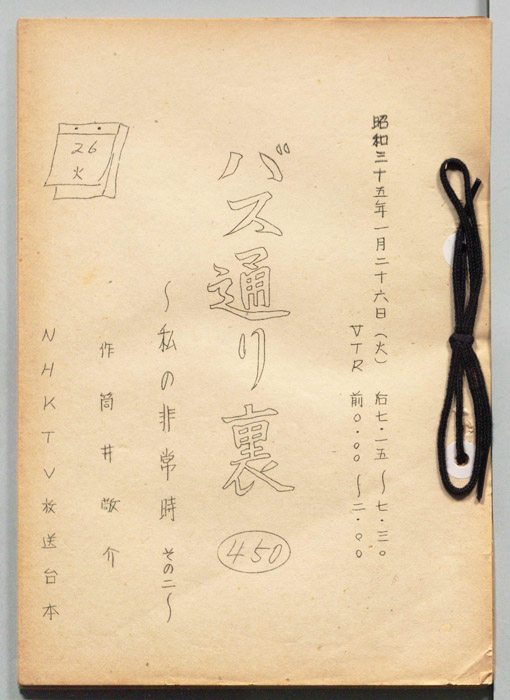 昭和三十五年一月二十六日（火） 后七・一五〜七・三〇
VTR 前〇・〇〇〜二・〇〇
バス通り裏
450
〜私の非常時 その二〜
作 筒井敬介
NHKTV放送台本
26
火